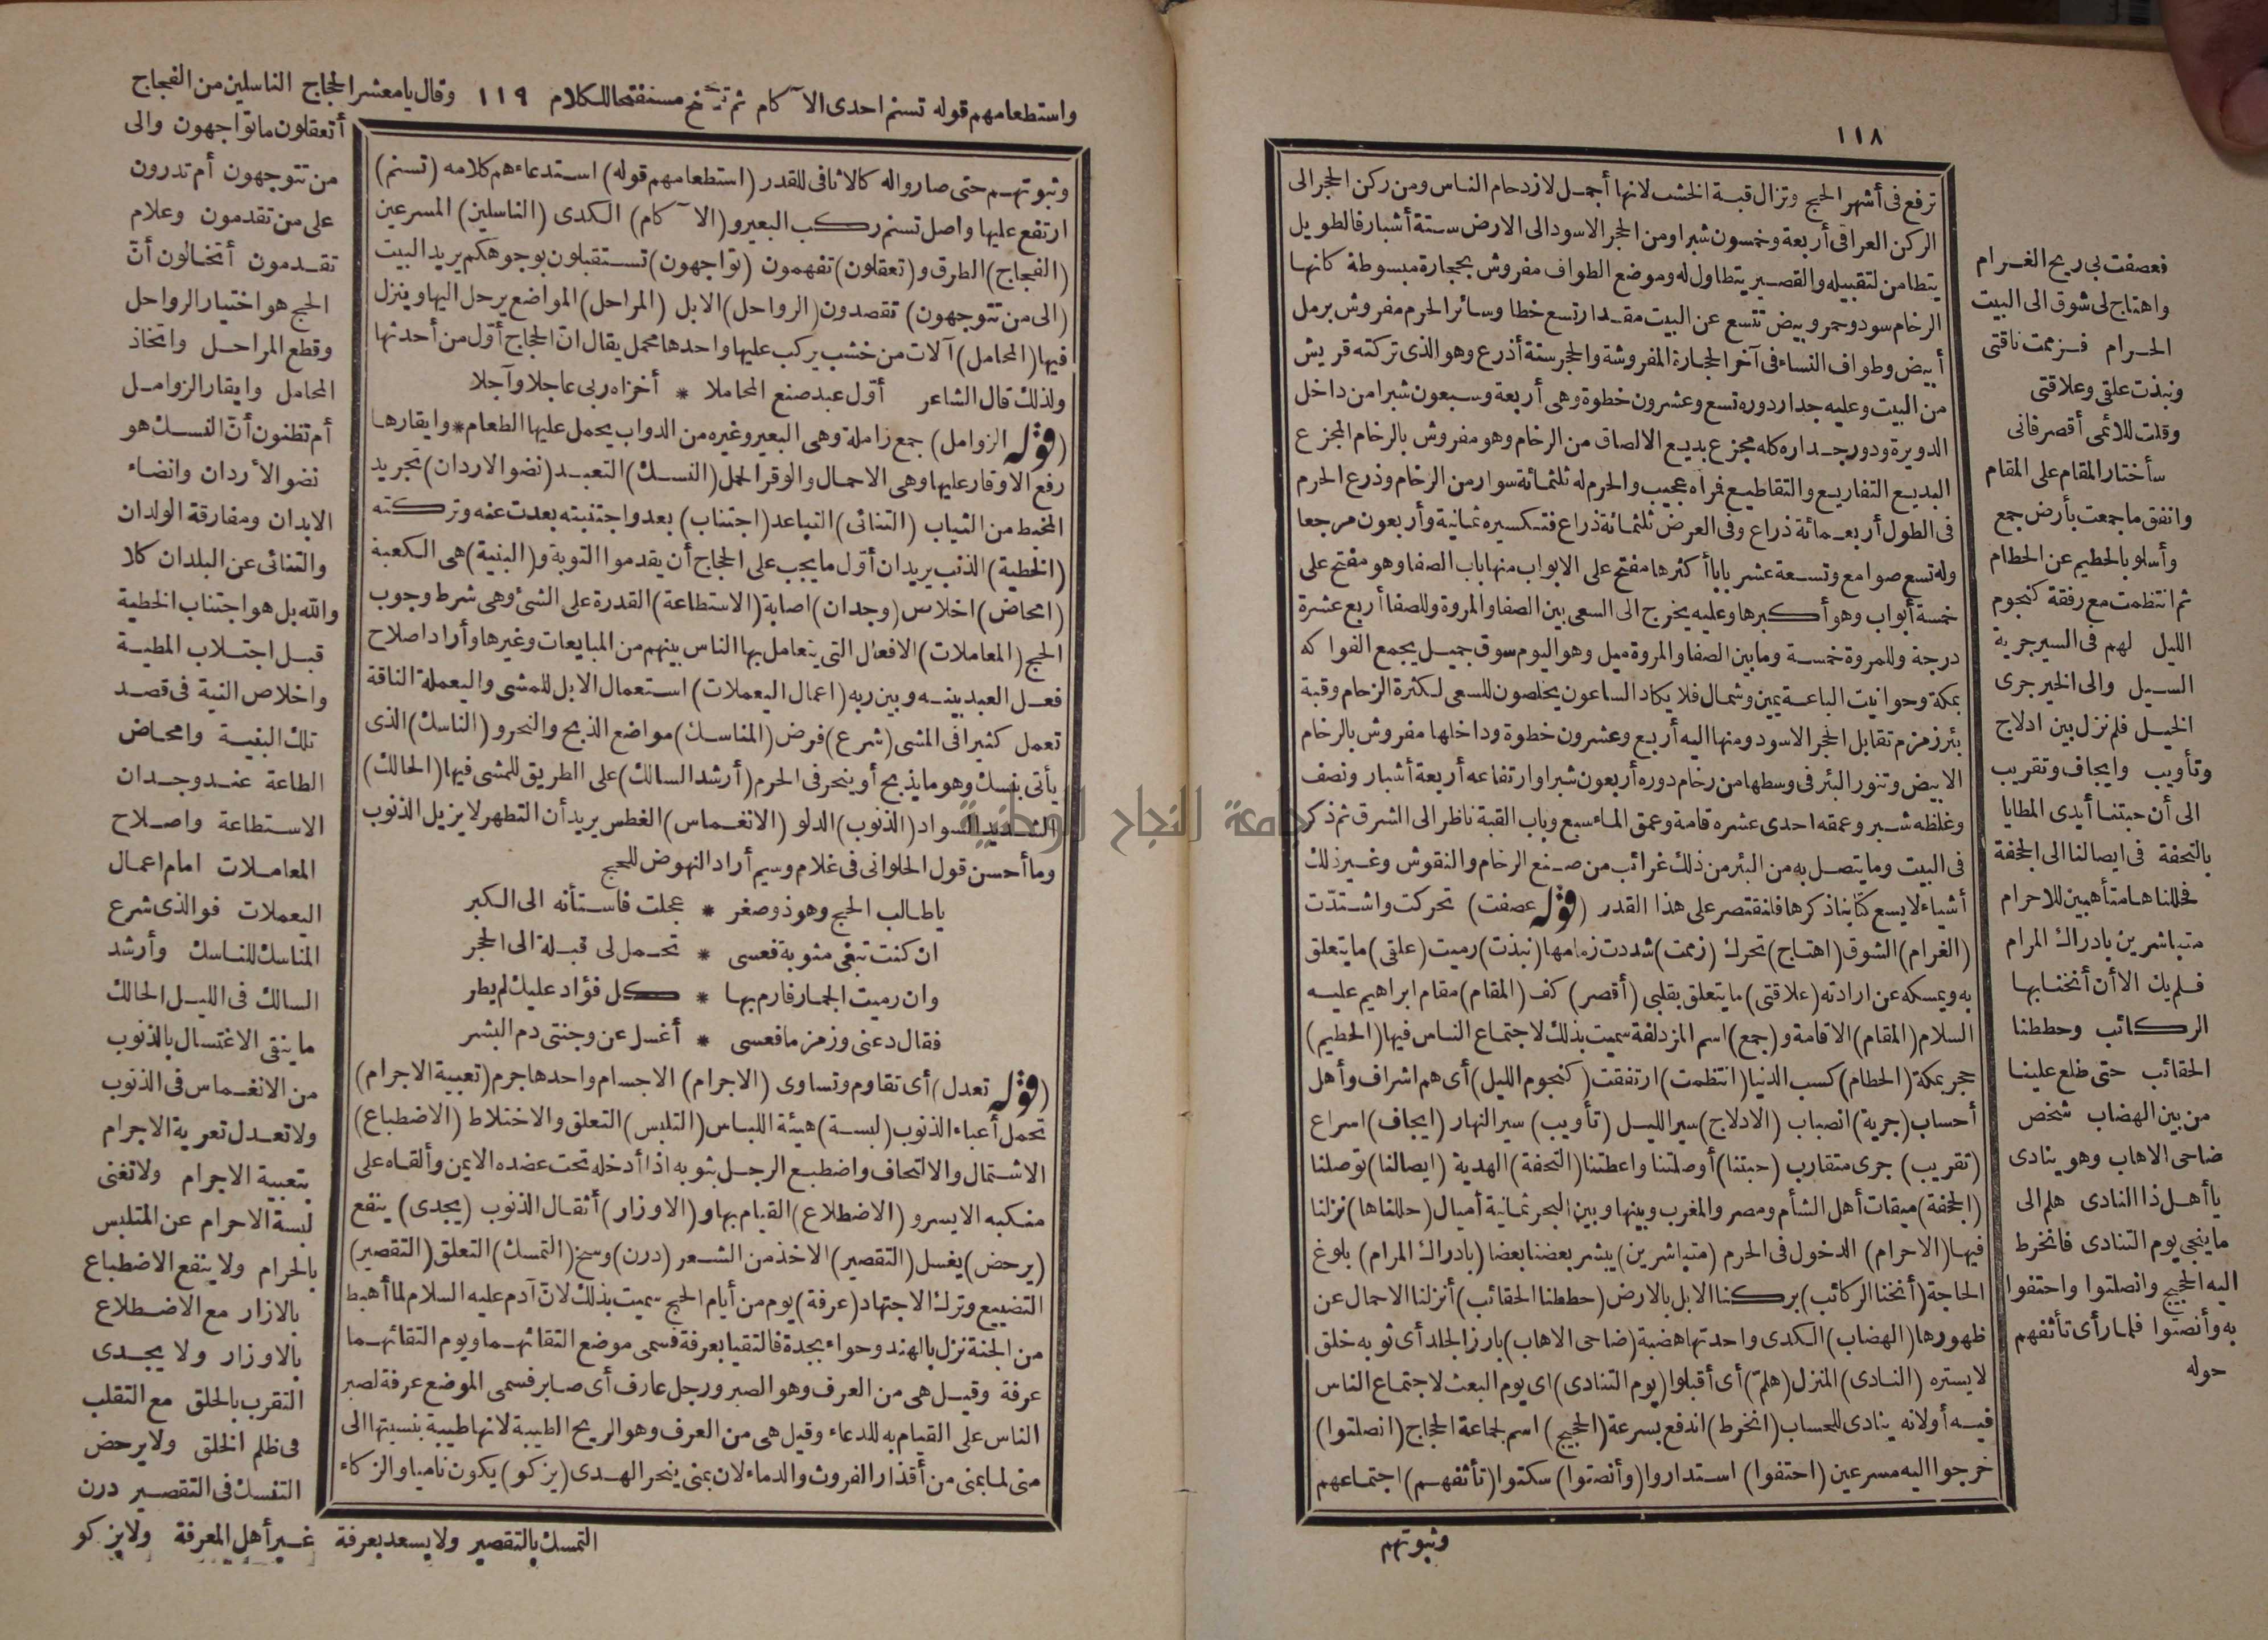 ١١٨
ترفع فى أشهر الحج وتزال قبة الخشب لانها أجمل لازدحام الناس ومن ركن الحجر الى
الركن العراقى أربعة وخمسون شبرا ومن الحجر الاسود الى الارض ستة أشبار فالطويل
يتطامن لتقبيله والقصير يتطاول له وموضع الطواف مفروش بحجارة مبسوطة كانها
الرخام سود وحمر وبيض تتسع عن البيت مقدار تسع خطا وسائر الحرم مفروش برمل
أبيض وطواف النساء فى آخر الحجارة المفروشة والحجر ستة أذرع وهو الذى تركته قريش
من البيت وعليه جدار دوره تسع وعشرون خطوة وهى أربعة وسبعون شبرا من داخل
الدويرة ودور جداره كله مجزع بديع الالصاق من الرخام وهو مفروش بالرخام المجزع
البديع التفاريع والتقاطيع فرآه عجيب والحرم له ثلثمائة سوار من الرخام وذرع الحرم
فى الطول أربعمائة ذراع وفى العرض ثلثمائة ذراع فتكسيره ثمانية وأربعون مرجعا
وله تسع صوامع وتسعة عشر بابا أكثرها مفتح على الابواب منها باب الصفا وهو مفتح على
خمسة أبواب وهو أكبرها وعليه يخرج الى السعى بين الصفا والمروة وللصفا أربع عشرة
درجة وللمروة خمسة وما بين الصفا والمروة ميل وهو اليوم سوق جميل يجمع الفواكه
بمكة وحوانيت الباعة يمين وشمال فلا يكاد الساعون يخلصون للسعى لكثرة الزحام وقبة
بئر زمزم تقابل الحجر الاسود ومنها اليه أربع وعشرون خطوة وداخلها مفروش بالرخام
الابيض وتنور البئر فى وسطها من رخام دوره أربعون شبرا وارتفاعه أربعة أشبار ونصف
وغلظه شبر وعمقه احدى عشره قامة وعمق الماء سبع وباب القبة ناظر الى الشرق ثم ذكر
فى البيت وما يتصل به من البئر من ذلك غرائب من صنع الرخام والنقوش وغير ذلك
أشياء لا يسع كتابنا ذكرها فلنقتصر على هذا القدر (قوله عصفت) تحركت واشتدت
(الغرام) الشوق (اهتاج) تحرك (زممت) شددت زمامها (نبذت) رميت (علقى) ما يتعلق
به ويمسكه عن ارادته (علاقتى) ما يتعلق بقلبى (أقصر) كف (المقام) مقام ابراهيم عليه
السلام (المقام) الاقامة و(جمع) اسم المزدلفة سميت بذلك لاجتماع الناس فيها (الحطيم)
حجر بمكة (الحطام) كسب الدنيا (انتظمت) ارتفقت (كنجوم الليل) أى هم اشراف وأهل
أحساب (جرية) انصباب (الادلاج) سير الليل (تأويب) سير النهار (ايجاف) اسراع
(تقريب) جرى متقارب (حبتنا) أوصلتنا واعطتنا (التحفة) الهدية (ايصالنا) توصلنا
(الجحفة) ميقات أهل الشأم ومصر والمغرب وبينها وبين البحر ثمانية أميال (حللناها) نزلنا
فيها (الاحرام) الدخول فى الحرم (متباشرين) يبشر بعضنا بعضا (بادراك المرام) بلوغ
الحاجة (أنخنا الركائب) بركنا الابل بالارض (حططنا الحقائب) أنزلنا الاحمال عن
ظهورها (الهضاب) الكدى واحدتها هضبة (ضاحى الاهاب) بارز الجلد أى ثوبه خلق
لا يستره (النادى) المنزل (هلمّ) أى أقبلوا (يوم التنادى) اى يوم البعث لاجتماع الناس
فيه أو لانه ينادى للحساب (انخرط) اندفع بسرعة (الحجيج) اسم لجماعة الحجاج (انصلتوا)
خرجوا اليه مسرعين (احتفوا) استداروا (وأنصتوا) سكتوا (تأثفهم) اجتماعهم
وثبوتهم
فعصفت بى ريح الغرام
واهتاج لى شوق الى البيت
الحرام فزممت ناقتى
ونبذت علقى وعلاقتى
وقلت للائمى أقصر فانى
سأختار المقام على المقام
وانفق ما جمعت بأرض جمع
وأسلو بالحطيم عن الحطام
ثم انتظمت مع رفقة كنجوم
الليل لهم فى السير جرية
السيل والى الخير جرى
الخيل فلم نزل بين ادلاج
وتأويب وايجاف وتقريب
الى أن حبتنا أيدى المطايا
بالتحفة فى ايصالنا الى الجحفة
فحللناها متأهبين للاحرام
متباشرين بادراك المرام
فلم يك الا أن أنخنا بها
الركائب وحططنا
الحقائب حتى طلع علينا
من بين الهضاب شخص
ضاحى الاهاب وهو ينادى
يا أهل ذا النادى هلم الى
ما ينجى يوم التنادى فانخرط
اليه الحجيج وانصلتوا واحتفوا
به وأنصتوا فلما رأى تأثفهم
حوله
واستطعامهم قوله تسنم احدى الآكام ثم تنحنح مستفتحا للكلام ١١٩ وقال يا معشر الحجاج الناسلين من الفجاج
وثبوتهم حتى صاروا له كالاثافى للقدر (استطعامهم قوله) استدعاءهم كلامه (تسنم)
ارتفع عليها واصل تسنم ركب البعير و(الآكام) الكدى (الناسلين) المسرعين
(الفجاج) الطرق و(تعقلون) تفهمون (تواجهون) تستقبلون بوجوهكم يريد البيت
(الى من تتوجهون) تقصدون (الرواحل) الابل (المراحل) المواضع يرحل اليها وينزل
فيها (المحامل) آلات من خشب يركب عليها واحدها محمل يقال انّ الحجاج أوّل من أحدثها
ولذلك قال الشاعر أوّل عبد صنع المحاملا * أخزاه ربى عاجلا وآجلا
(قوله الزوامل) جمع زاملة وهى البعير وغيره من الدواب يحمل عليها الطعام * وايقارها
رفع الاوقار عليها وهى الاحمال والوقر الحمل (النسك) التعبد (نضو الاردان) تجريد
المخيط من الثياب (التنائى) التباعد (اجتناب) بعد واجتنبته بعدت عنه وتركته
(الخطية) الذنب يريد ان أوّل ما يجب على الحجاج أن يقدموا التوبة و(البنية) هى الكعبة
(امحاض) اخلاص (وجدان) اصابة (الاستطاعة) القدرة على الشئ وهى شرط وجوب
الحج (المعاملات) الافعال التى يتعامل بها الناس بينهم من المبايعات وغيرها وأراد اصلاح
فعل العبد بينه وبين ربه (اعمال اليعملات) استعمال الابل للمشى واليعملة الناقة
تعمل كثيرا فى المشى (شرع) فرض (المناسك) مواضع الذبح والنحر و(الناسك) الذى
يأتى بنسك وهو ما يذبح أو ينحر فى الحرم (أرشد السالك) على الطريق للمشى فيها (الحالك)
الشديد السواد (الذنوب) الدلو (الانغماس) الغطس يريد أن التطهر لا يزيل الذنوب
وما أحسن قول الحلوانى فى غلام وسيم أراد النهوض للحج
يا طالب الحج وهو ذو صغر * عجلت فاستأنه الى الكبر
ان كنت تبغى مثوبة فعسى * تحمل لى قبلة الى الحجر
وان رميت الجمار فارم بها * كل فؤاد عليك لم يطر
فقال دعنى وزمزم ما فعسى * أغسل عن وجنتى دم البشر
(قوله تعدل) أى تقاوم وتساوى (الاجرام) الاجسام واحدها جرم (تعبية الاجرام)
تحمل أعباء الذنوب (لبسة) هيئة اللباس (التلبس) التعلق والاختلاط (الاضطباع)
الاشتمال والالتحاف واضطبع الرجل بثوبه اذا أدخله تحت عضده الايمن وألقاه على
منكبه الايسر و(الاضطلاع) القيام بها و(الاوزار) أثقال الذنوب (يجدى) ينفع
(يرحض) يغسل (التقصير) الاخذ من الشعر (درن) وسخ (التمسك) التعلق (التقصير)
التضييع وترك الاجتهاد (عرفة) يوم من أيام الحج سميت بذلك لانّ آدم عليه السلام لما أهبط
من الجنة نزل بالهند وحواء بجدة فالتقيا بعرفة فسمى موضع التقائهما ويوم التقائهما
عرفة وقيل هى من العرف وهو الصبر ورجل عارف أى صابر فسمى الموضع عرفة لصبر
الناس على القيام به للدعاء وقيل هى من العرف وهو الريح الطيبة لانها طيبة بنسبتها الى
منى لما بمنى من أقذار الفروث والدماء لان بمنى ينحر الهدى (يزكو) يكون ناميا والزكاء
أتعقلون ما تواجهون والى
من تتوجهون أم تدرون
على من تقدمون وعلام
تقدمون أتخالون أنّ
الحج هو اختيار الرواحل
وقطع المراحل واتخاذ
المحامل وايقار الزوامل
أم تظنون أنّ النسك هو
نضو الأردان وانضاء
الابدان ومفارقة الولدان
والتنائى عن البلدان كلا
والله بل هو اجتناب الخطية
قبل اجتلاب المطية
واخلاص النية فى قصد
تلك البنية وامحاض
الطاعة عند وجدان
الاستطاعة واصلاح
المعاملات امام اعمال
اليعملات فوالذى شرع
المناسك للناسك وأرشد
السالك فى الليل الحالك
ما ينقى الاغتسال بالذنوب
من الانغماس فى الذنوب
ولا تعدل تعرية الاجرام
بتعبية الاجرام ولا تغنى
لبسة الاحرام عن المتلبس
بالحرام ولا ينفع الاضطباع
بالازار مع الاضطلاع
بالاوزار ولا يجدى
التقرب بالحلق مع التقلب
فى ظلم الخلق ولا يرحض
التنسك فى التقصير درن
التمسك بالتقصير ولا يسعد بعرفة غير أهل المعرفة ولا يزكو
جامعة النجاح الوطنية